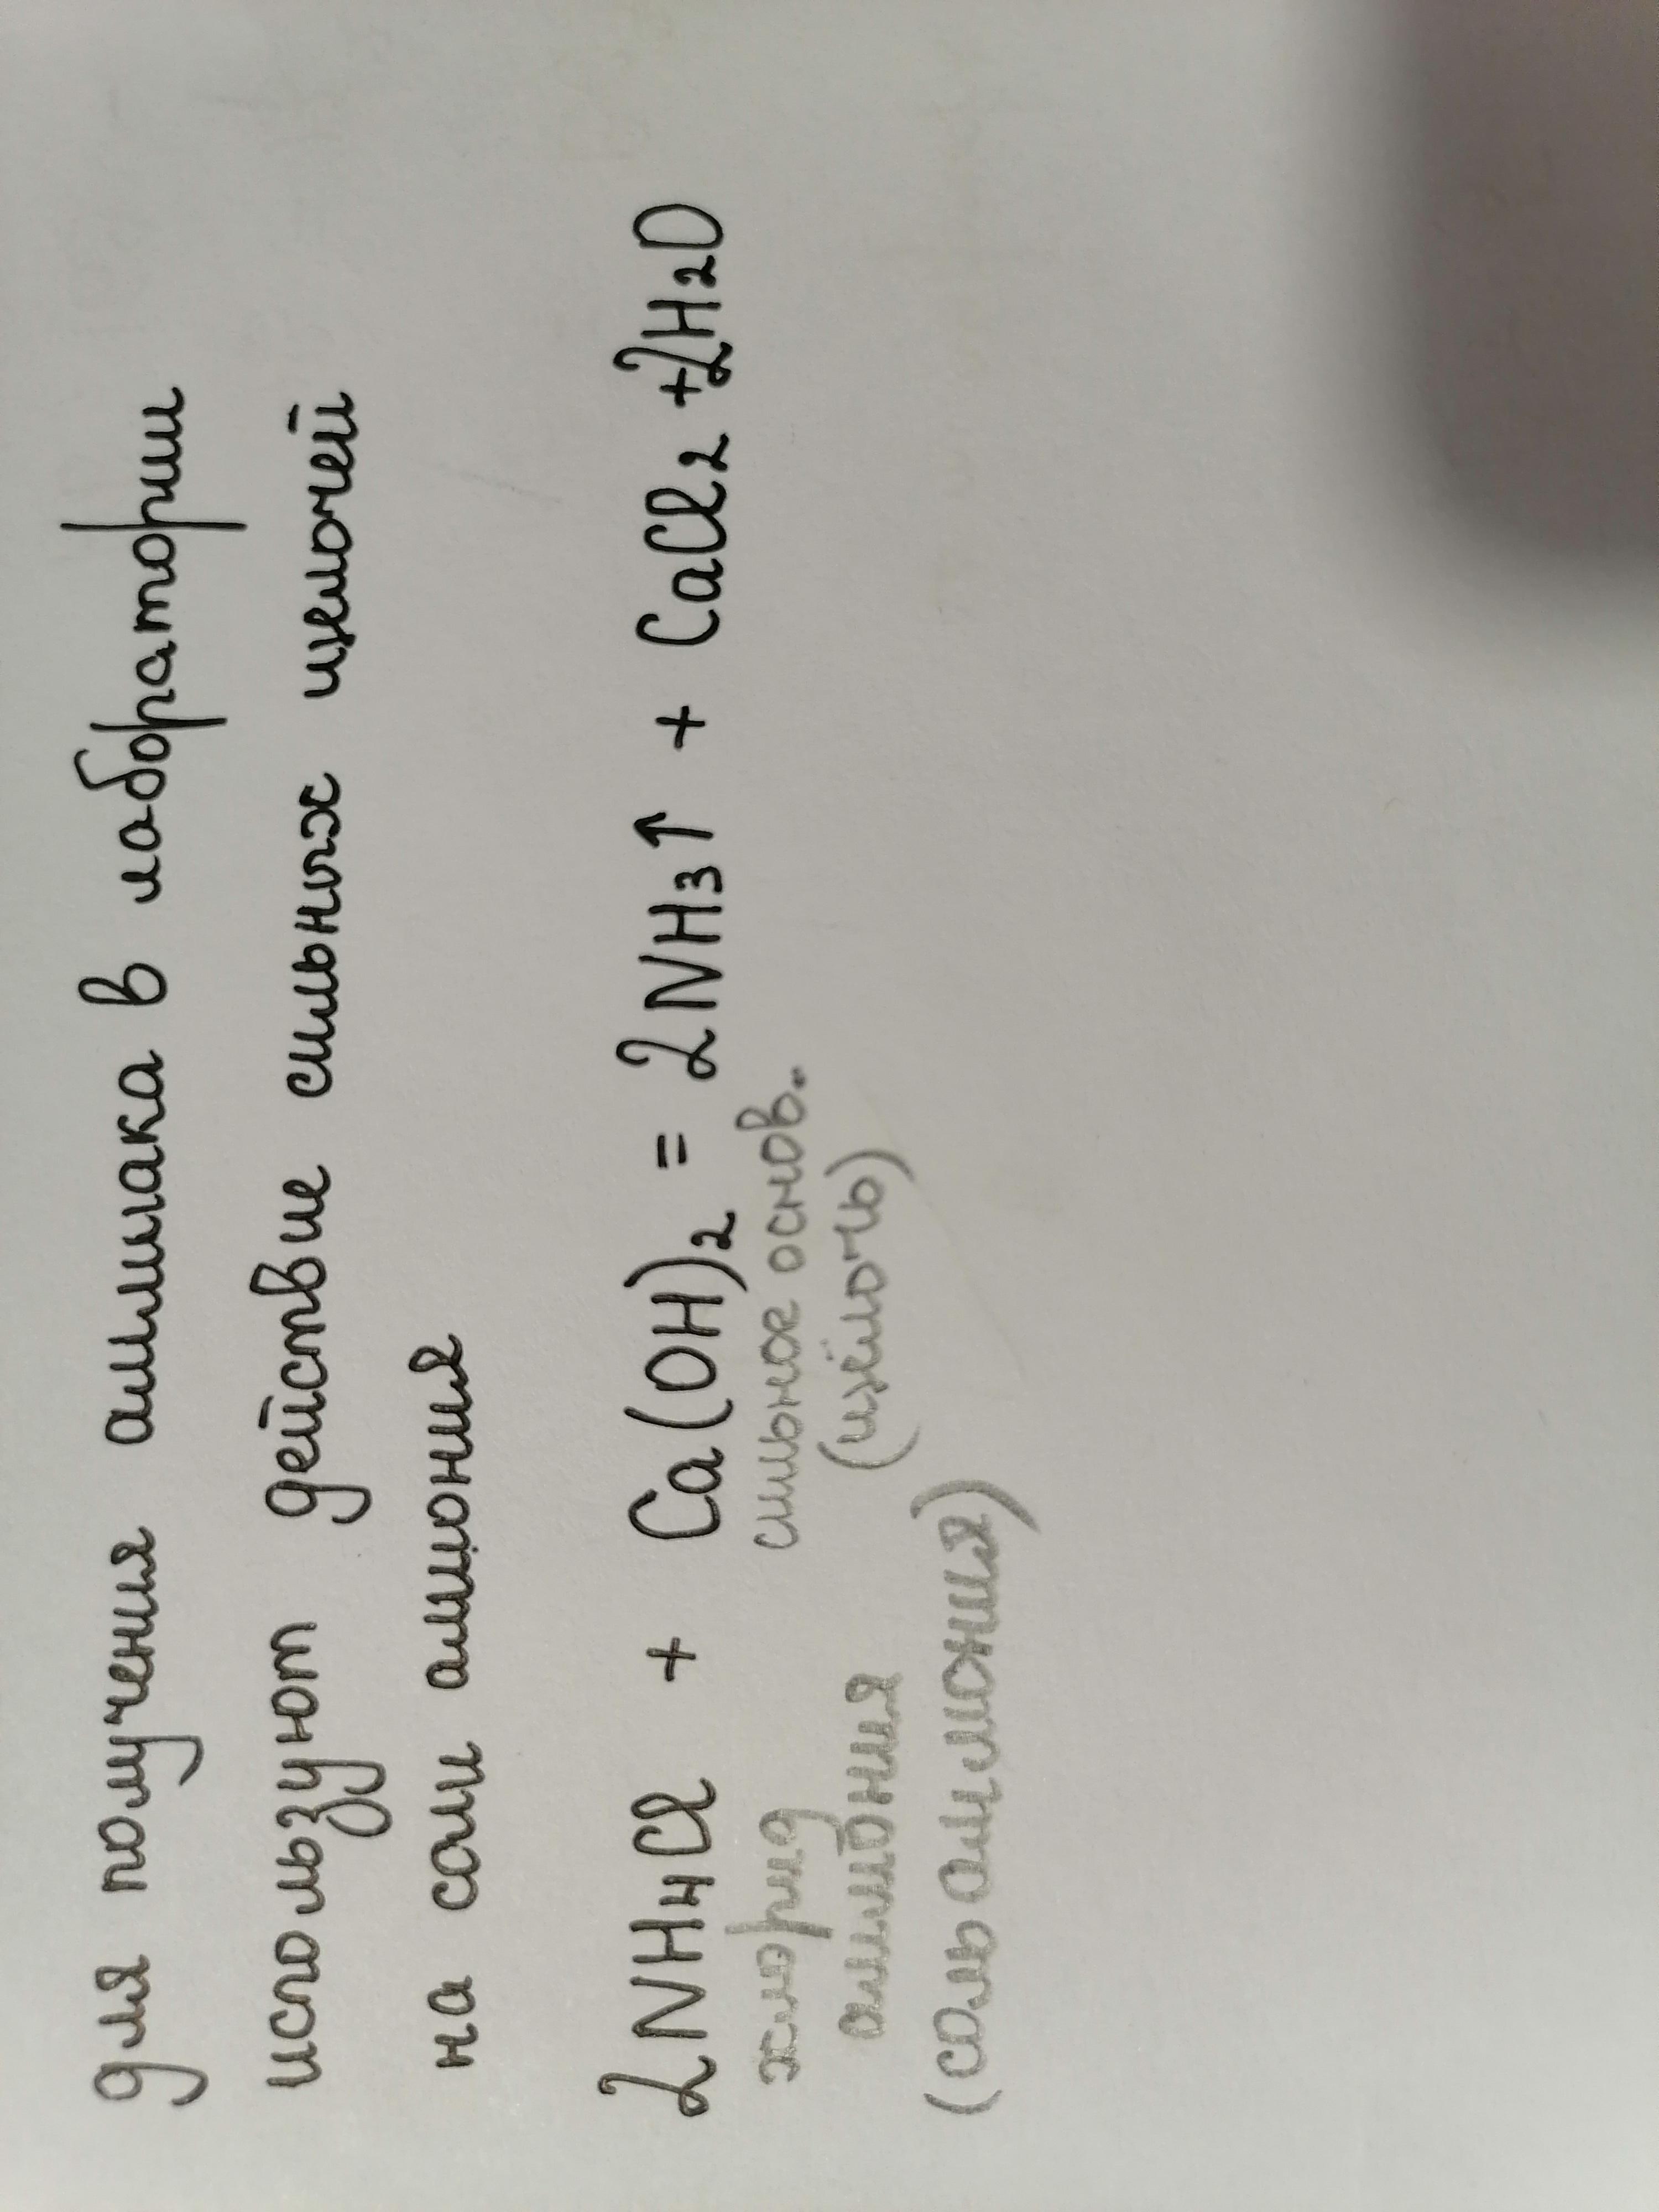 для получения аммиака в лаборатории
используют действие сильных щелочей
на соли аммония
2NH₄Cl + Ca(OH)₂ = 2NH₃↑ + CaCl₂ + 2H₂O
хлорид сильное основ.
аммония (щёлочь)
(соль аммония)